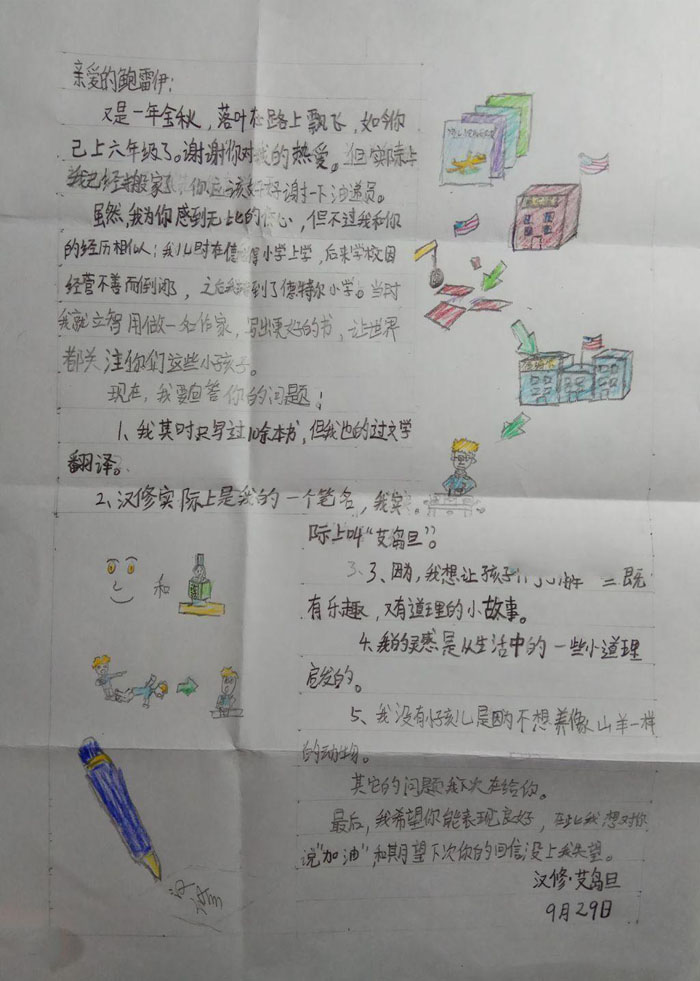 亲爱的鲍雷伊:
又是一年金秋，落叶在路上飘飞，如今你
已上六年级了。谢谢你对我的热爱。但实际上
我已经搬家了 你应该好好谢一下油递员。
虽然，我为你感到无比的信心，但不过我和你
的经历相似：我儿时在信 得小学上学，后来学校因
经营不善而倒闭了，之后我 到了德特尔小学。当时
我就立智用做一名作家，写出更好的书，让世界
都关注你们这些小孩子。
现在，我要回答你的问题：
1、我其时只写过10余本书，但我也的过文学
翻译。
2、汉修实际上是我的一个笔名，我实
际上叫“艾岛旦”。
3、因为，我想让孩子们 既
有乐趣，又有道理的小故事。
4、我的灵感是从生活中的一些小道理
启发的。
5、我没有小孩儿是因为不想养像山羊一样
的动物。
其它的问题我下次在给你。
最后，我希望你能表现良好，在此我想对你
说“加油”，和期望下次你的回信没上我失望。
汉修·艾岛旦
9月29日
和
汉修